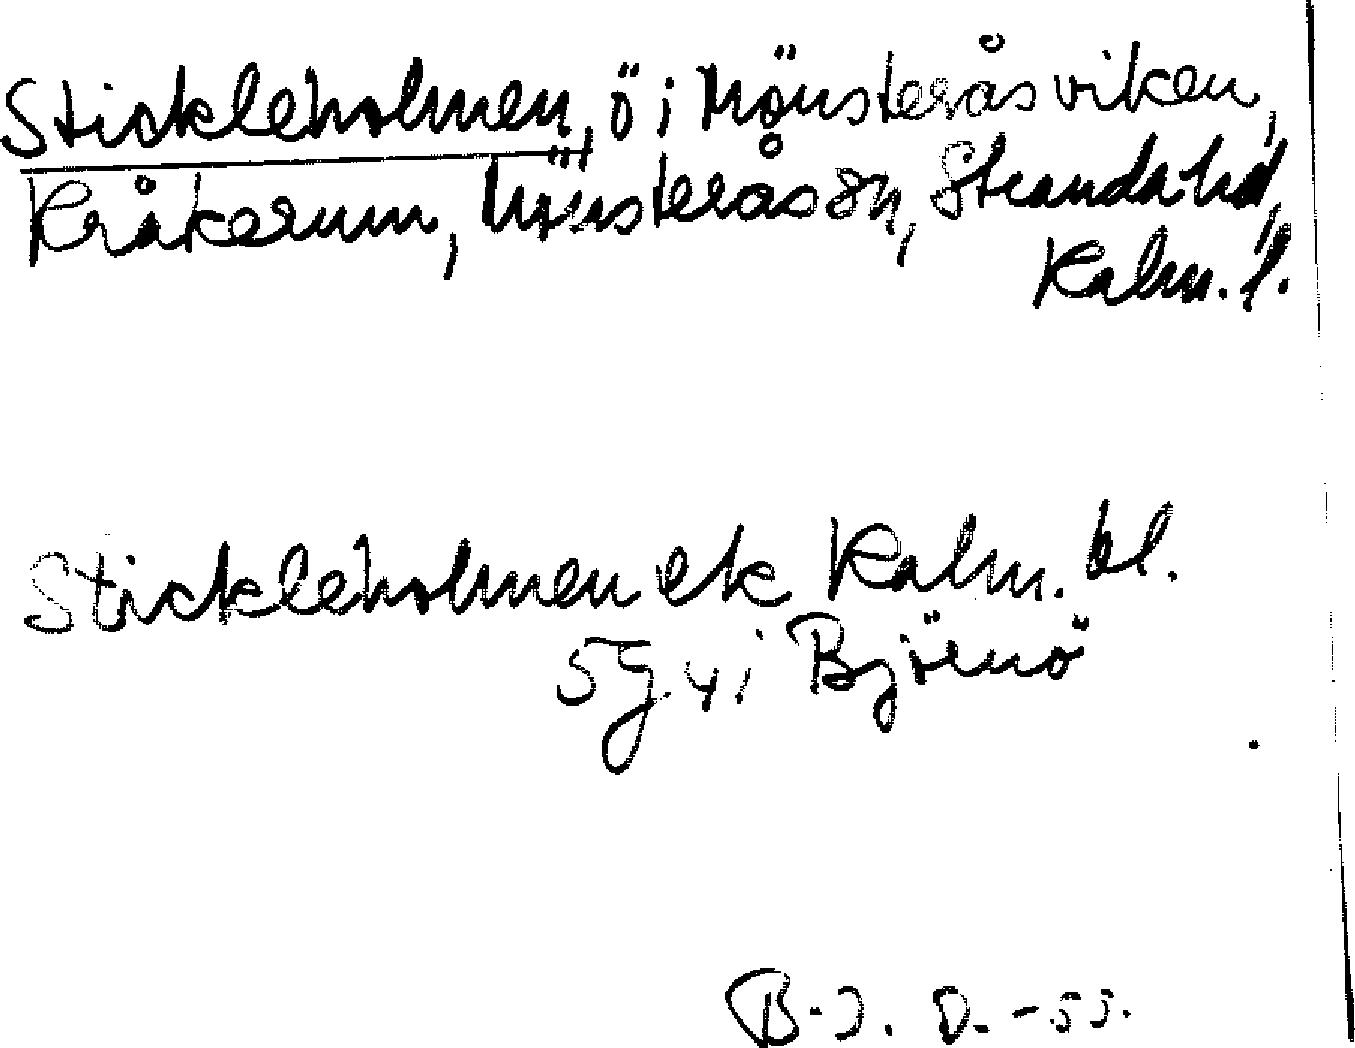 Stickleholmen, ö i Mönsteråsviken,
Kråkerum, Mönsterås sn, Stranda hd,
Kalm. l.
Stickleholmen ek Kalm. bl.
5 g 4 i Björnö
B-J. D. -55.